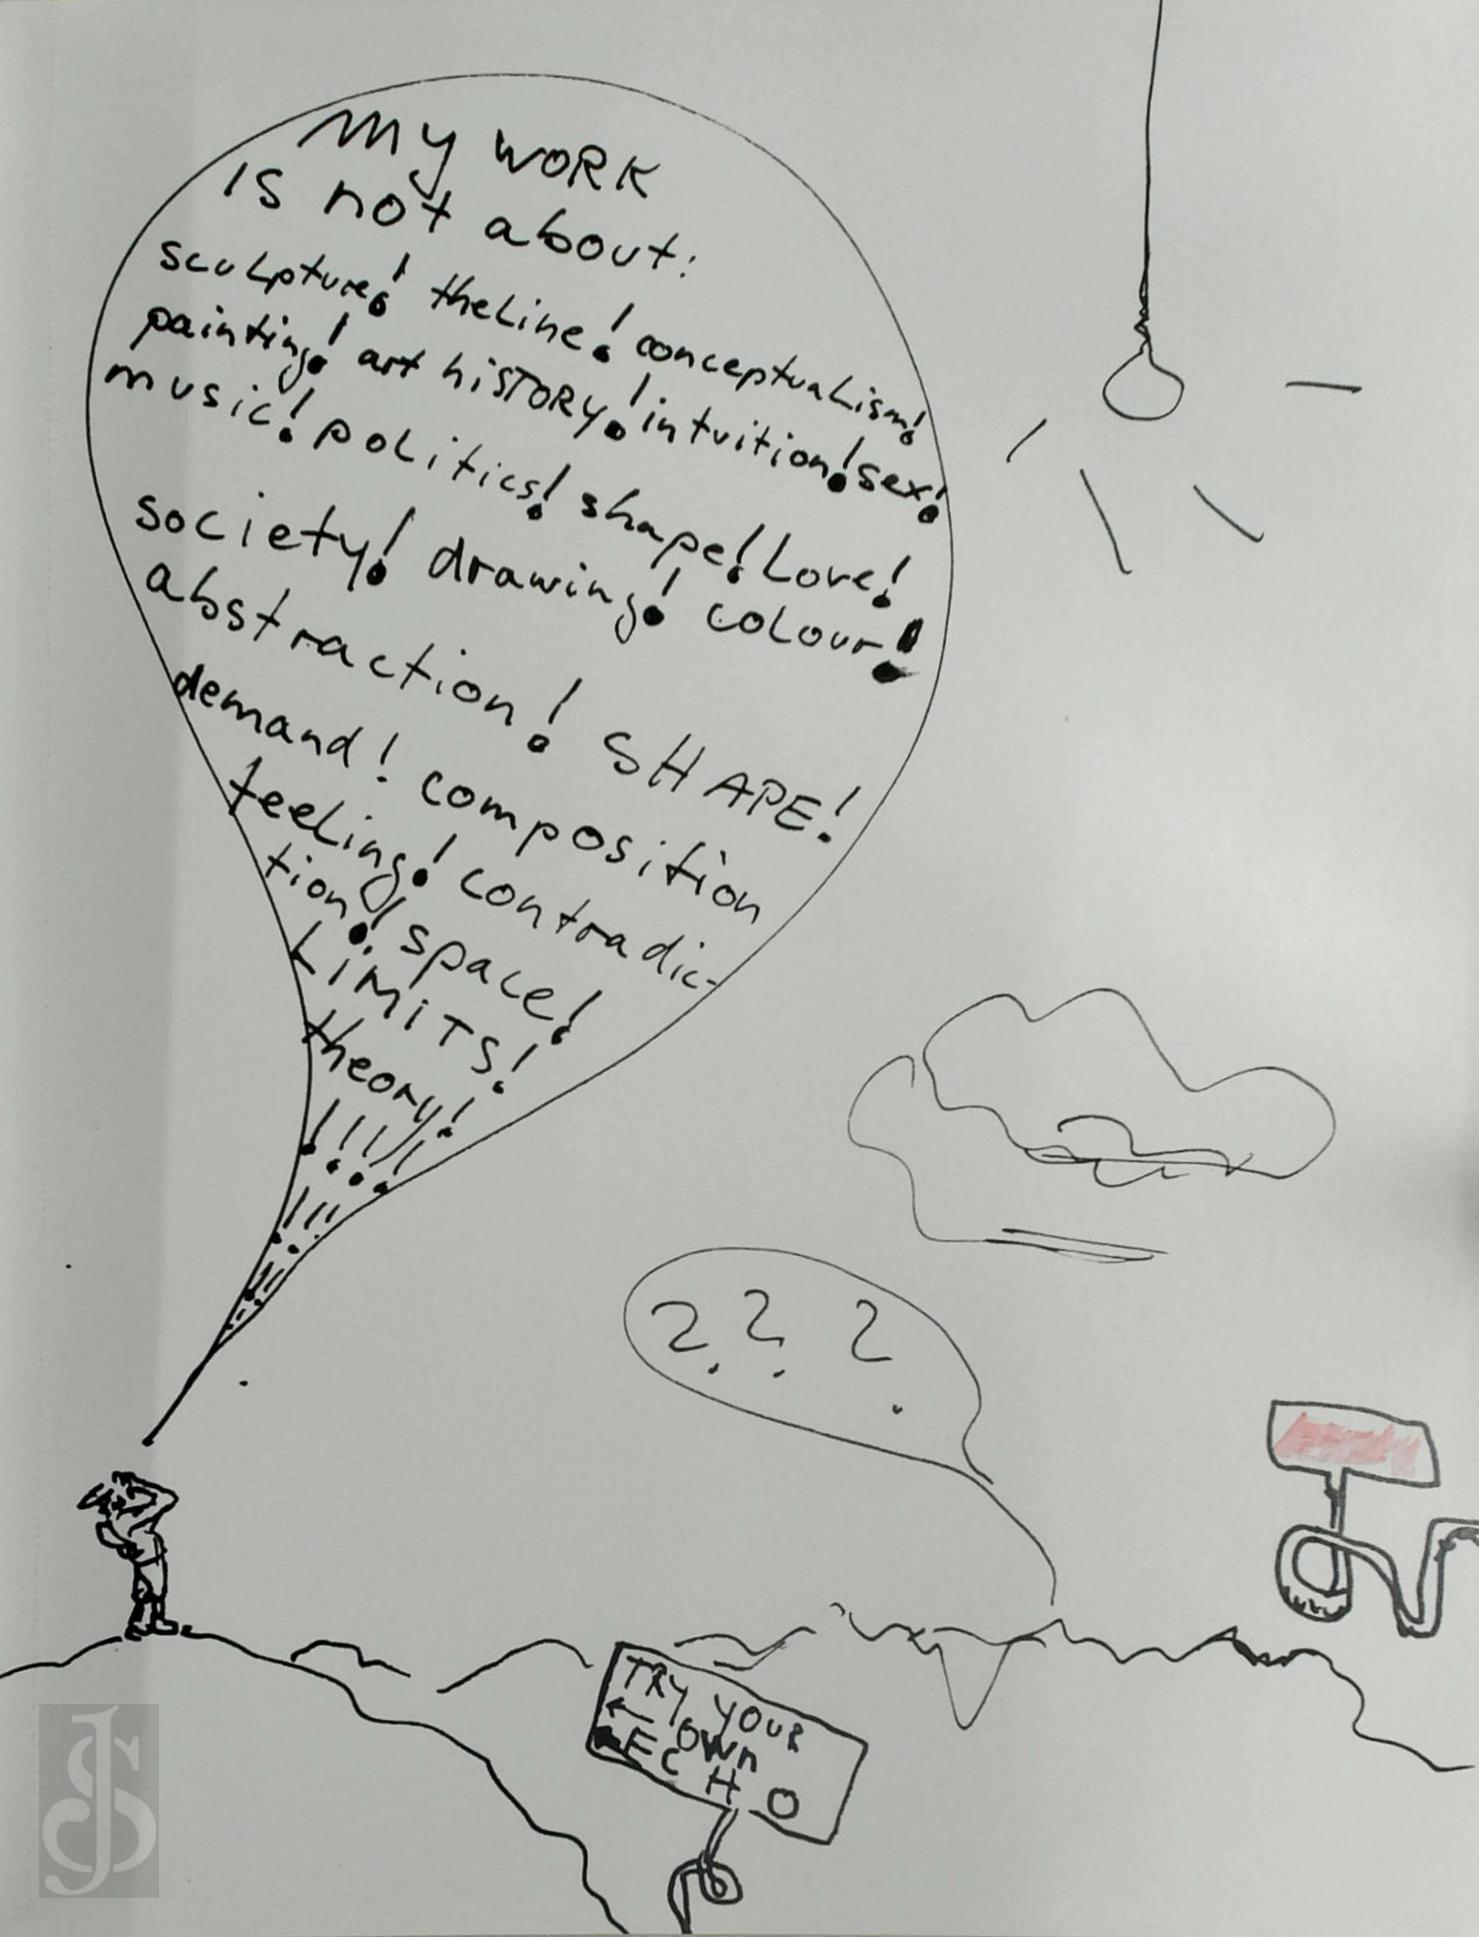 my WORK
is not about:
sculpture! the Line! conceptualism!
painting! art hiSTORY! intuition! sex!
music! politics! shape! Love!
society! drawing! colour!
abstraction! SHAPE!
demand! composition
feeling! contradic-
tion! space!
LiMiTS!
theory!
!!!!
!!!
? ? ?
TRY YOUR
← OWN
ECHO
JS